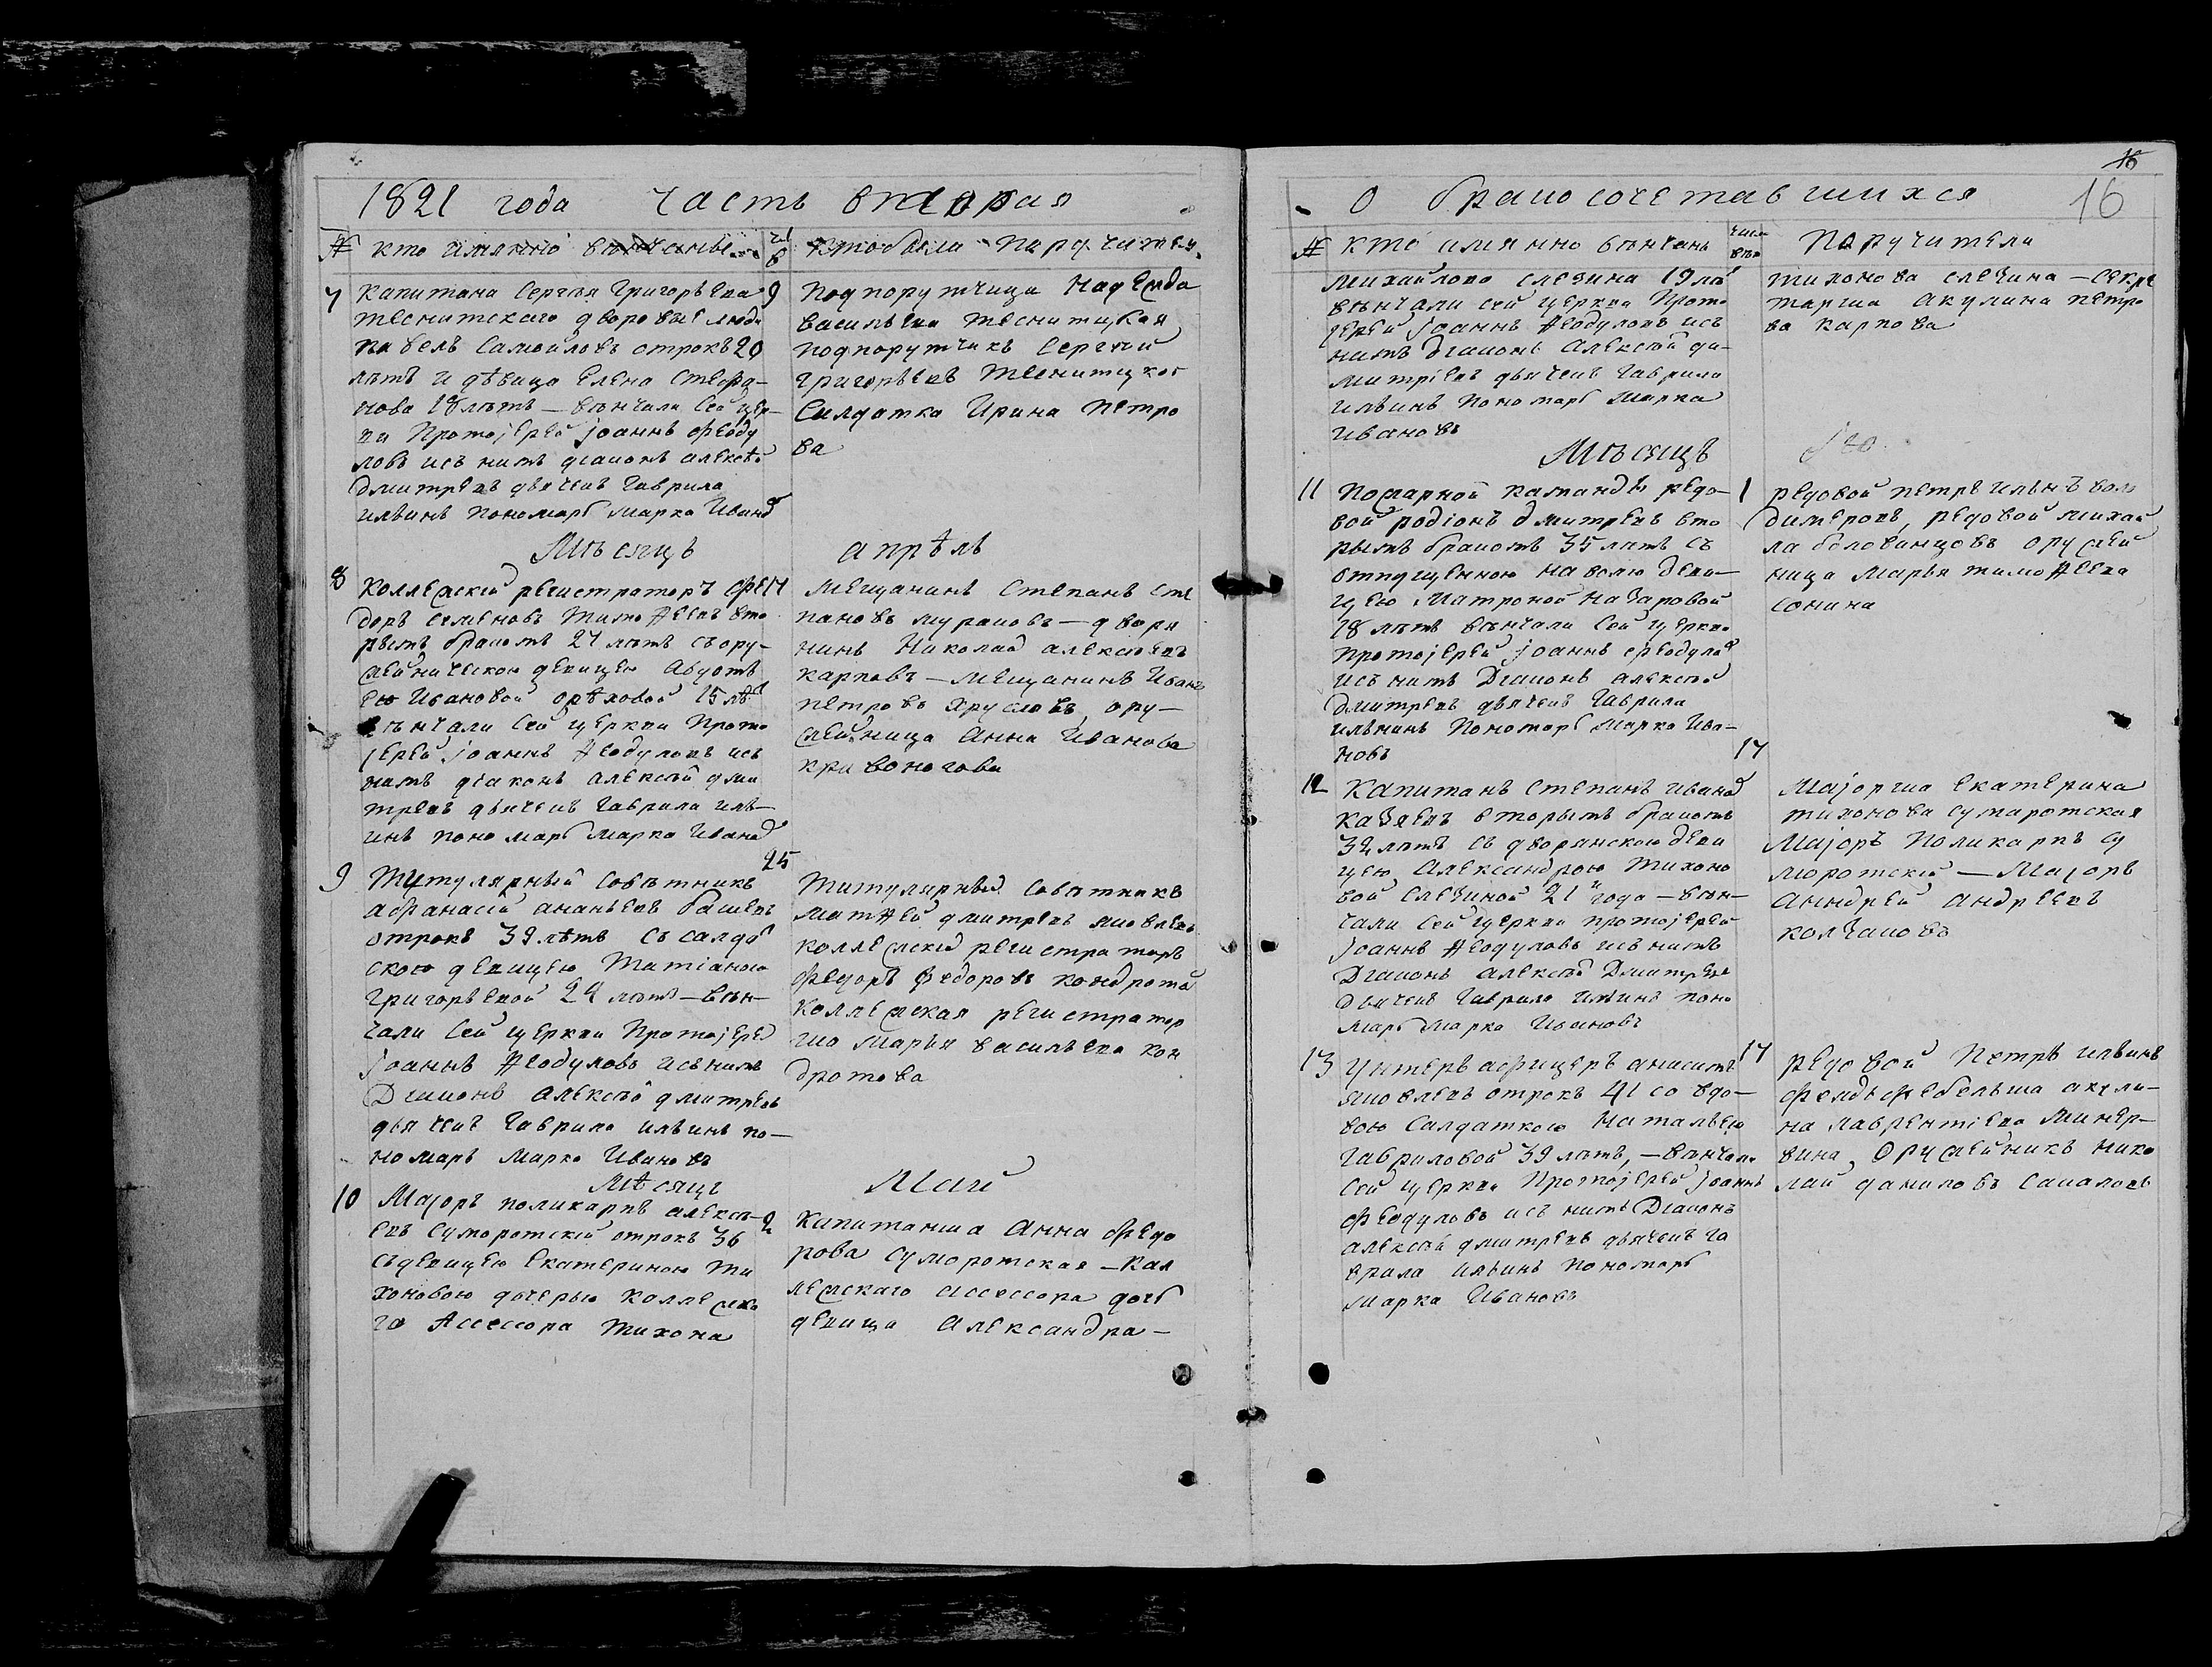 1821 года часть вторая
№ кто имянно венчаны числ кто были поручители
7 Капитана Сергея Григорьева 9
Теснитскаго дворовые люди
Павелъ Самойловъ отрокъ 20
лѣтъ и дѣвица Елена Стефа-
нова 18 лѣтъ — вѣнчали сей цер-
кви Протоjерей jоаннъ Феоду
ловъ исъ нимъ дiаконъ алексѣй
Дмитревъ дьячекъ Гаврила
ильинъ пономарь марка Иванов
Подпорутчица Надежда
васильева теснитцкая
подпорутчикъ Сергей
григорьевъ теснитцкой
Салдатка Ирина петро
ва
Мѣсяцъ апрѣль
8 Коллежский регистраторъ Фе 17
доръ семеновъ Тимоѳеевъ вто
рымъ бракомъ 27 лѣтъ съ ору-
жейническою девицею Авдоть
ею Ивановой орѣховой 15 лѣт
вѣнчали сей церкви Прото
jерей jоаннъ Ѳеодуловъ исъ
нимъ дiаконъ алексѣй дми
тревъ дьячекъ Гаврила иль-
инъ пономарь марка Иванов
Мещанинъ Степанъ сте
пановъ мураковъ — дворя
нинъ Николай алексѣевъ
карповъ — мещанинъ Иванъ
петровъ хрусловъ ору-
жейница Анна Иванова
кривоногова
9 Титулярный Совѣтникъ 25
афанасiй ананьевъ башевъ
отрокъ 39 лѣтъ съ салда
скою девицею Татiаною
Григорьевой 24 лѣтъ — вѣн-
чали Сей церкви Протоjерей
jоаннъ Ѳеодуловъ исъ нимъ
Дiаконъ алексѣй дмитревъ
дьячекъ Гаврила ильинъ по-
номарь Марка Ивановъ
Титулярный Совѣтникъ
матѳей дмитревъ яковлевъ
коллежскiй регистраторъ
Федоръ Федоровъ кондротов
Коллежская регистратор
ша Марья васильева кон
дротова
Мѣсяцъ Май
10 Маjоръ поликарпъ алексѣ- 2
евъ Суморотский отрокъ 36
съ девицею Екатериною Ти
хоновою дочерью коллежска
го Асессора Тихона
Капитанша Анна Федо
рова суморотская — Кол
лежскаго асессора дочь
девица Александра —
16
О бракосочетавшихся 16
№ кто имянно вѣнчанъ числ вѣн Поручители
михайлова слезина 19 лѣт
вѣнчали сей церкви Прото
jерей jоаннъ Ѳеодуловъ исъ
нимъ дiаконъ Алексѣй ди-
митрiевъ дьячекъ Гаврила
ильинъ пономарь Марка
Ивановъ
тихонова слезина — секре
тарша Акулина петро
ва карпова
Мѣсяцъ
11 Пожарной каманды редо- 1
вой родiонъ дмитревъ вто
рымъ бракомъ 35 лѣтъ съ
отпущенною на волю деви-
цею Матроной Назаровой
18 лѣтъ вѣнчали Сей церкви
протоjерей jоаннъ Феодулов
исъ нимъ Дiаконъ алексѣй
Дмитревъ дьячекъ Гаврила
ильинъ пономарь Марка Ива-
новъ
редовой петръ ильинъ воло
димеровъ, редовой михай
ла боловинцовъ оружей
ница Марья тимоѳеева
сонина
12 Капитанъ степанъ иванов 17
Казяевъ вторымъ бракомъ
32 лѣтъ съ дворянскою деви
цею Александрою Тихоно
вой слезиной 21 года — вѣн-
чали сей церкви протоjерей
jоаннъ Ѳеодуловъ исъ нимъ
Дiаконъ алексѣй Дмитревъ
дьячекъ Гаврила Ильинъ поно
марь Марка Ивановъ
Маjорша екатерина
тихонова суморотская
Маjоръ Поликарпъ су
моротскiй — Маjоръ
Анндрей андреевъ
колзаковъ
13 Унтеръ афицеръ анисимъ 17
яковлевъ отрокъ 41 со вдо-
вою Салдаткою Натальею
Гавриловой 39 лѣтъ, — вѣнчали
сей церкви Протоjерей jоаннъ
Феодуловъ исъ нимъ Дiаконъ
алексѣй дмитревъ дьячекъ га
врила ильинъ пономарь
Марка Ивановъ
редовой Петръ ильинъ
фельдъфебельша акули-
на лаврентiева минер-
вина, Оружейникъ нико
лай даниловъ